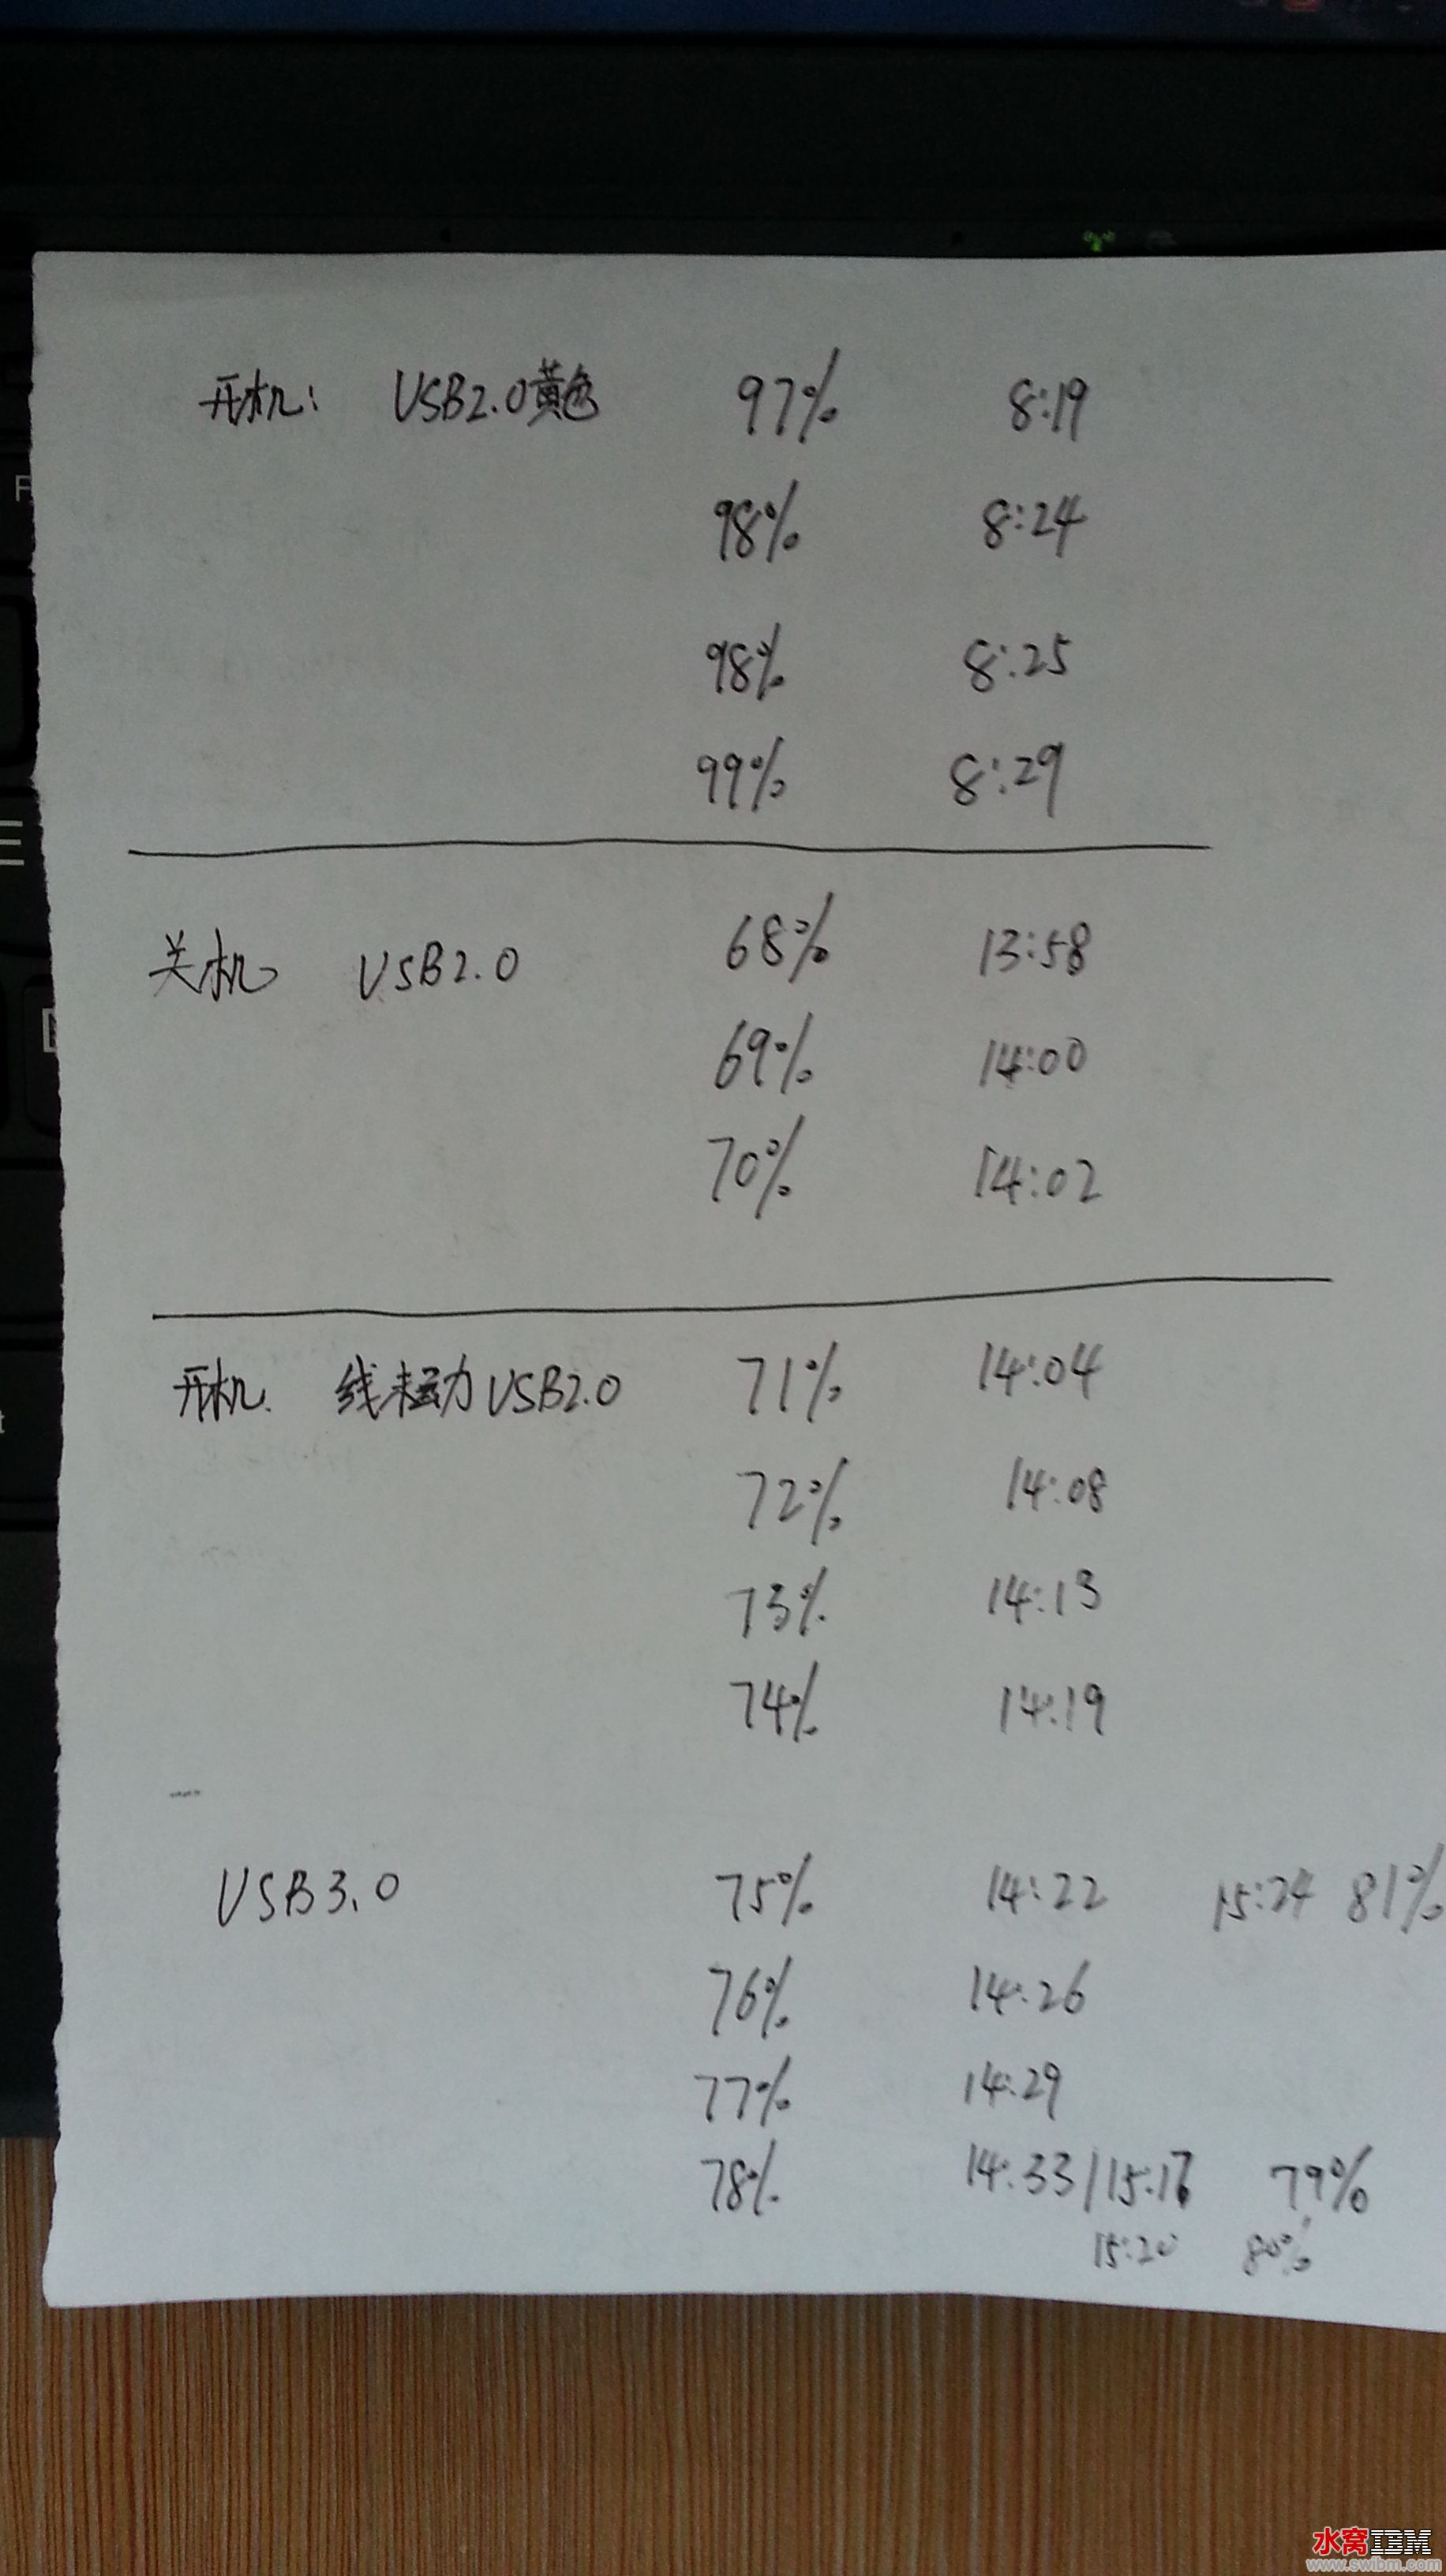 开机: USB2.0黄色 97% 8:19
98% 8:24
98% 8:25
99% 8:29
关机 USB2.0 68% 13:58
69% 14:00
70% 14:02
开机. 线未动 USB2.0 71% 14:04
72% 14:08
73% 14:13
74% 14:19
USB3.0 75% 14:22 15:24 81%
76% 14:26
77% 14:29
78% 14:33/15:17 79%
15:20 80%
水窝IBM
www.swibm.com